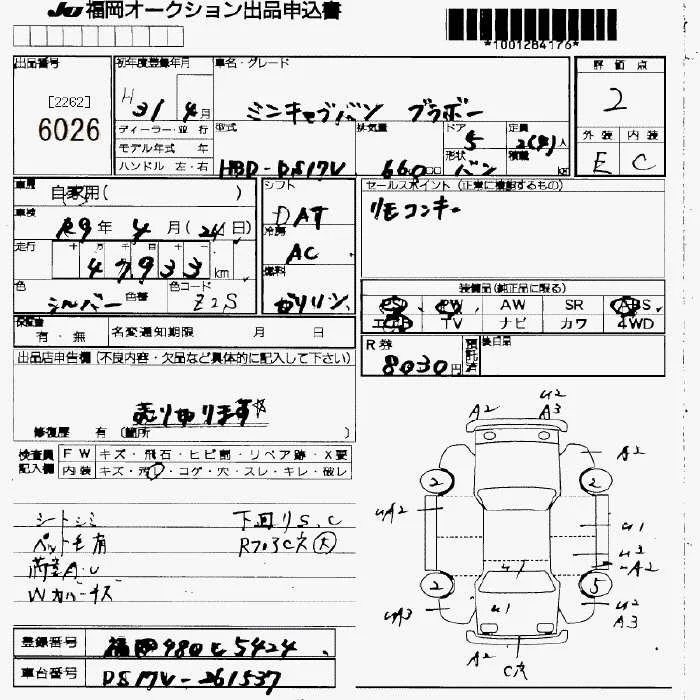 JU 福岡オークション出品申込書
*1001284176*
出品番号
[2262]
6026
初年度登録年月
H 31 4月
車名・グレード
ミニキャブバン ブラボー
ディーラー・並 行
モデル年式 年
ハンドル 左・右
型式
HBD-DS17V
排気量
660 cc
ドア
5
形状
バン
定員
2(4)人
積載
kg
評価点
2
外装 内装
E C
車歴
自家用( )
車検
R9年 4月(24日)
走行
十 万 千 百 十
47,933 km
色
シルバー
色替
色コード
Z2S
シフト
DAT
冷房
AC
燃料
ガソリン
セールスポイント (正常に機能するもの)
リモコンキー
装備品(純正品に限る)
PS PW AW SR ABS
エアB TV ナビ カワ 4WD
保証書
有・無
名変通知期限 月 日
R券
8030円
預託済
後日品
出品店申告欄(不良内容・欠品など具体的に記入して下さい)
売り切ります☆
修復歴 有 (箇所
検査員
記入欄
FW キズ・飛石・ヒビ割・リペア跡・X要
内装 キズ・汚・コゲ・穴・スレ・キレ・破レ
シートシミ
ペット毛有
荷室A.U
Wカバーキズ
下回りS.C
RフロC穴(大)
A2
U2
A3
A2
2
2
UA2
U1
U3
A2
U1
2
5
UA3
U1
U2
A3
A2
C穴
登録番号
福岡480と5424
車台番号
DS17V-261537